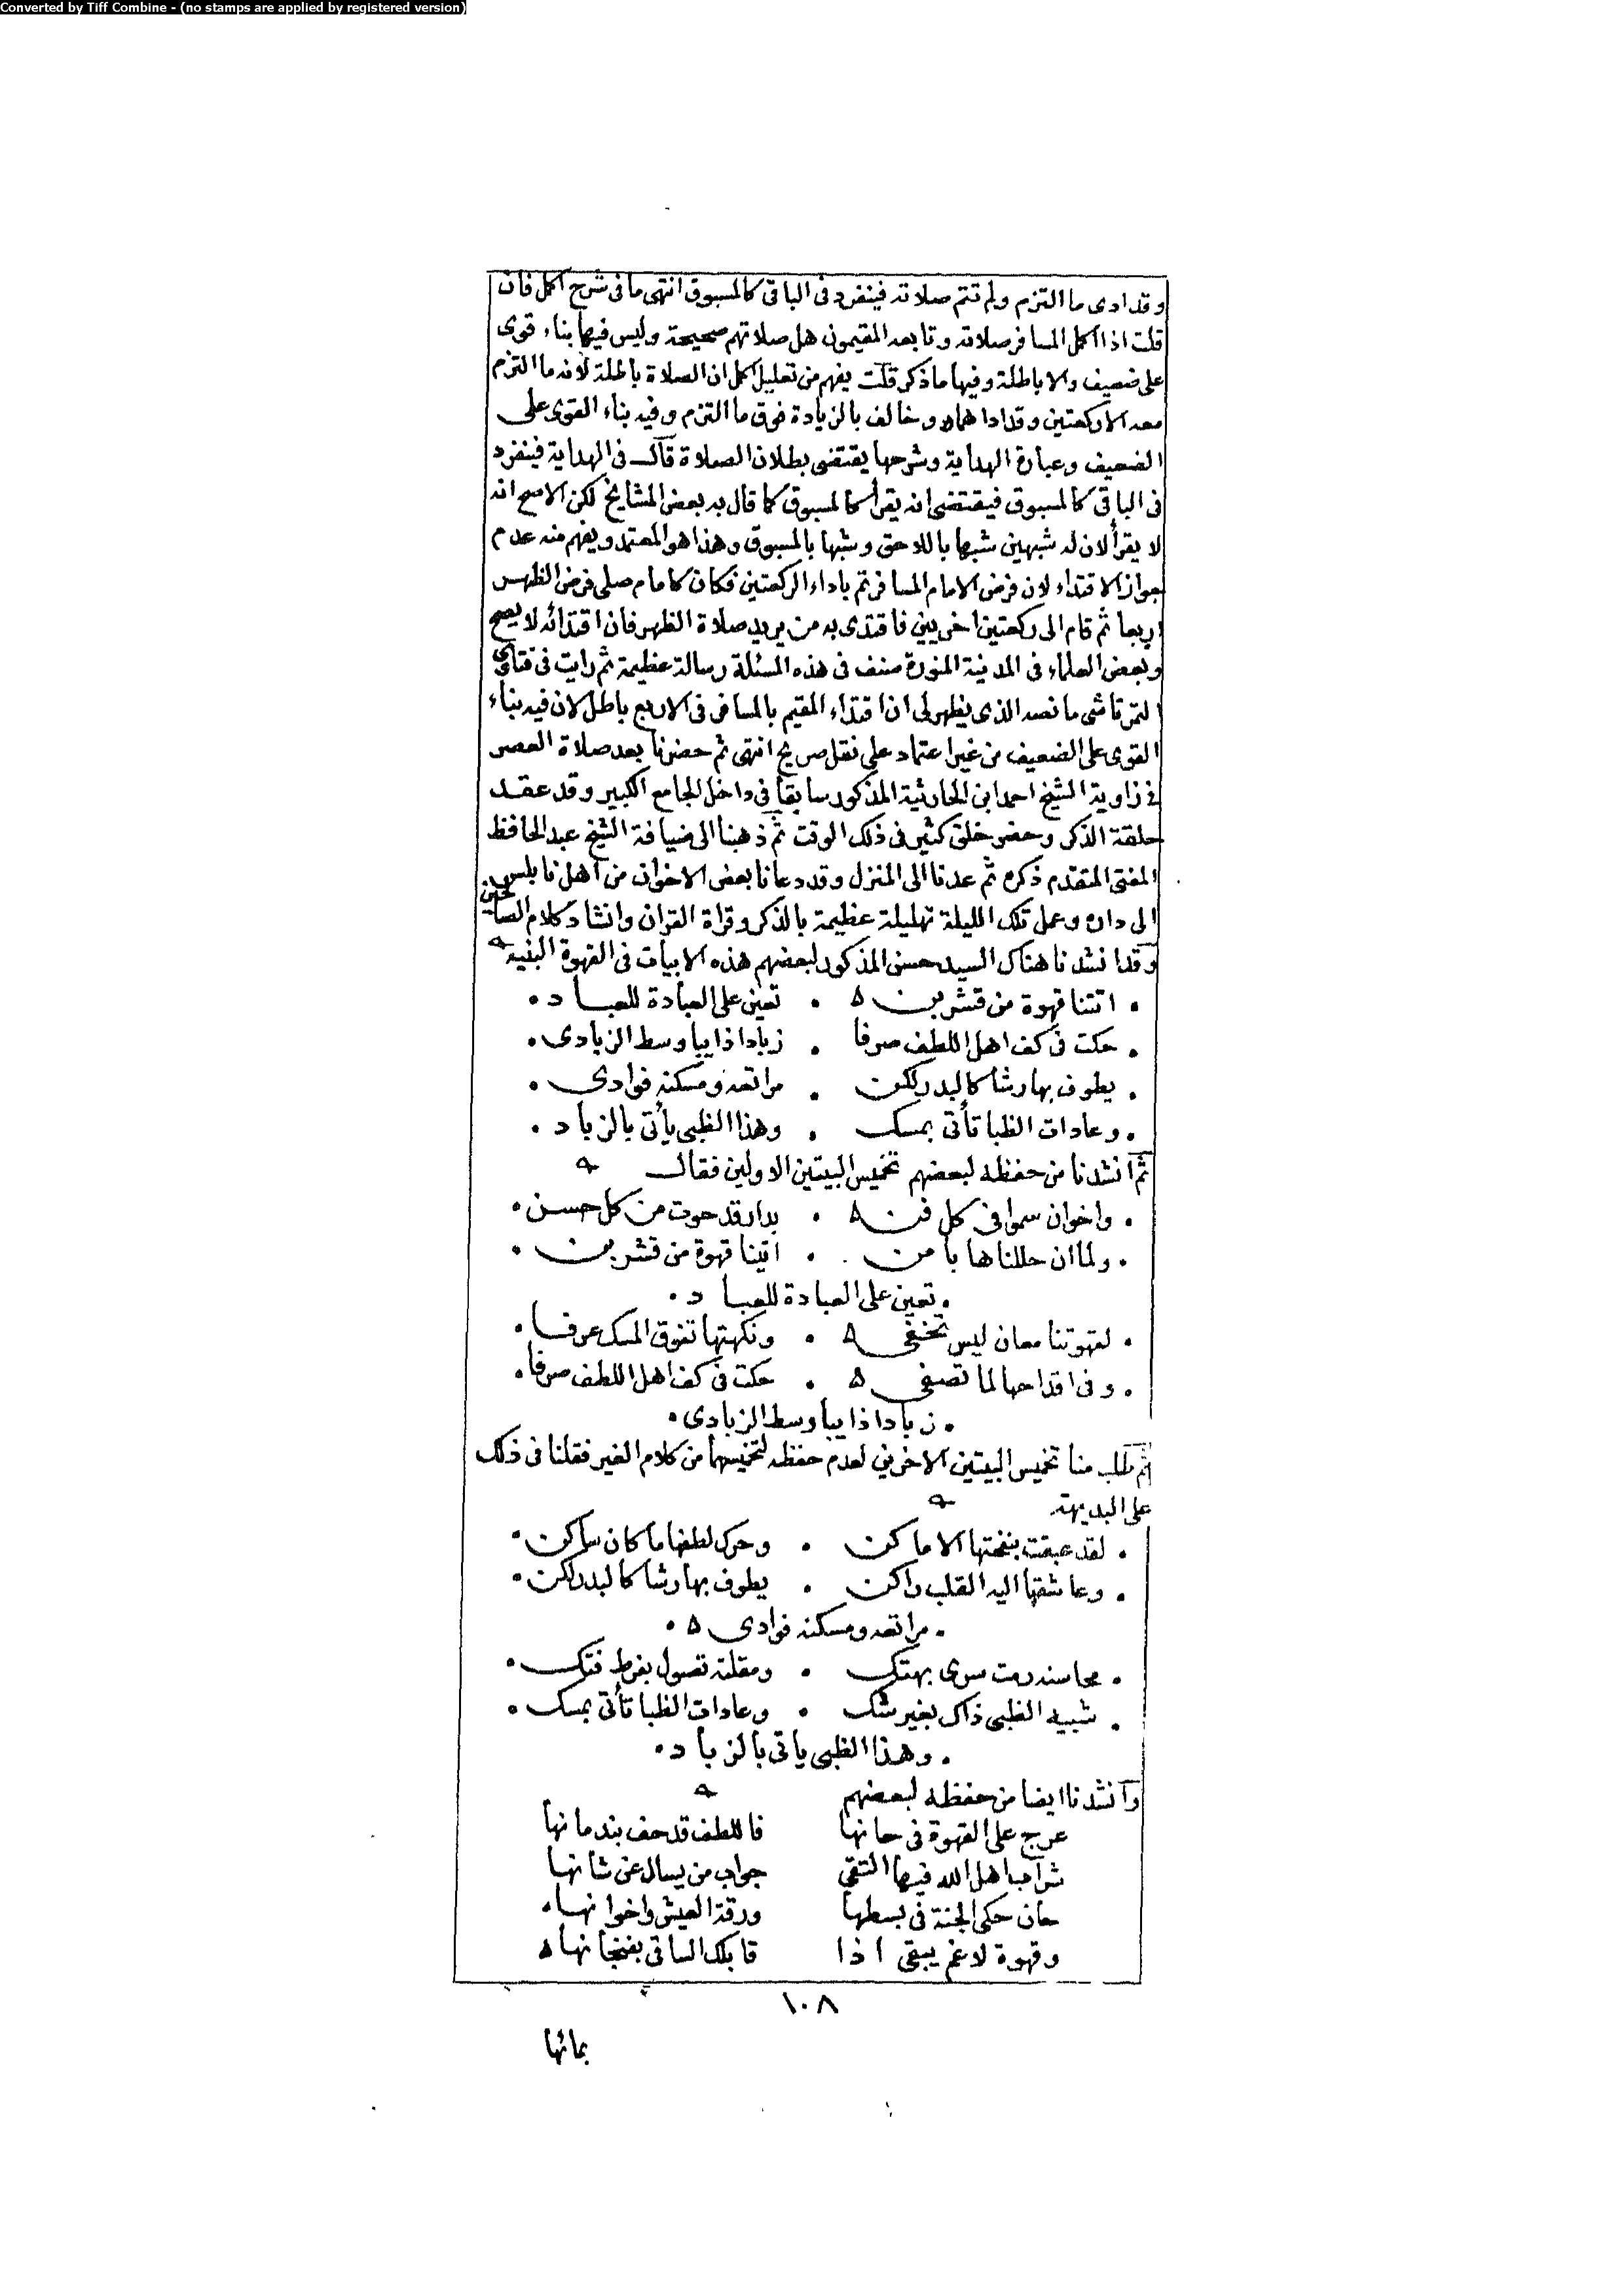 Converted by Tiff Combine - (no stamps are applied by registered version)
وقد ادى ما التزم ولم تتم صلاته فينفرد فى الباقى كالمسبوق انتهى ما فى شرح اكمل فان
قلت اذا اكمل المسافر صلاته وتابعه المقيمون هل صلاتهم صحيحة وليس فيها بناء قوى
على ضعيف والا باطلة وفيها ما ذكر قلت يفهم من تعليل اكمل ان الصلاة باطلة لانه ما التزم
معه الا ركعتين وقد اداهما وخالف بالزيادة فوق ما التزم وفيه بناء القوى على
الضعيف وعبارة الهداية وشرحها يقتضى بطلان الصلاة قال فى الهداية فينفرد
فى الباقى كالمسبوق فيقتضى انه يقرأ كالمسبوق كما قال به بعض المشايخ لكن الاصح انه
لا يقرأ لان له شبهين شبها باللاحق وشبها بالمسبوق وهذا هو المعتمد ويفهم منه عدم
جواز الاقتداء لان فرض الامام المسافر تم باداء الركعتين فكان كامام صلى فرض الظهر
اربعا ثم قام الى ركعتين اخريين فاقتدى به من يريد صلاة الظهر فان اقتدائه لا يصح
وبعض العلماء فى المدينة المنورة صنف فى هذه المسئلة رسالة عظيمة ثم رايت فى فتاوى
التمرتاشى ما نصه الذى يظهر لى ان اقتداء المقيم بالمسافر فى الاربع باطل لان فيه بناء
القوى على الضعيف من غير اعتماد على نقل صريح انتهى ثم حضرنا بعد صلاة العصر
فى زاوية الشيخ احمد ابن الحارثية المذكور سابقا فى داخل الجامع الكبير وقد عقد
حلقة الذكر وحضر خلق كثير فى ذلك الوقت ثم ذهبنا الى ضيافة الشيخ عبد الحافظ
المفتى المتقدم ذكره ثم عدنا الى المنزل وقد دعانا بعض الاخوان من اهل نابلس
الى داره وعمل تلك الليلة تهليلة عظيمة بالذكر وقراة القران وانشاد كلام الصالحين
وقد انشدنا هناك السيد حسن المذكور لبعضهم هذه الابيات فى القهوة البنية
اتتنا قهوة من قشر بن . تعين على العبادة للعباد
حكت فى كف اهل اللطف صرفا . زبادا ذايبا وسط الزبادى
يطوف بها رشا كالبدر لكن . مراتعه ومسكنه فوادى
وعادات الظبا تأتى بمسك . وهذا الظبى يأتى بالزباد
ثم انشدنا من حفظه لبعضهم تخميس البيتين الاولين فقال
واخوان سموا فى كل فن . بدار قد حوت من كل حسن
ولما ان حللناها بامن . اتينا قهوة من قشر بن
تعين على العبادة للعباد
لقهوتنا معان ليس تخفى . ونكهتها تفوق المسك عرفا
وفى اقداحها لما تصفى . حكت فى كف اهل اللطف صرفا
زبادا ذايبا وسط الزبادى
ثم طلب منا تخميس البيتين الاخرين لعدم حفظه لتخميسهما من كلام الغير فقلنا فى ذلك
على البديهة
لقد عبقت بنفحتها الاماكن . وحرك لطفها ما كان ساكن
وعاشقها اليه القلب راكن . يطوف بها رشا كالبدر لكن
مراتعه ومسكنه فوادى
محاسنه رمت سرى بهتك . ومقلته تصول بفرط فتك
شبيه الظبى ذاك بغير شك . وعادات الظبا تأتى بمسك
وهذا الظبى ياتى بالزباد
وانشدنا ايضا من حفظه لبعضهم
عرج على القهوة فى حانها فاللطف قد حف بندمانها
شراب اهل الله فيها التقى جواب من يسال عن شانها
حان حكى الجنة فى بسطها ورقة العيش واخوانها
وقهوة لا غم يبقى اذا قابلك الساقى بفنجانها
١٠٨
بمائها